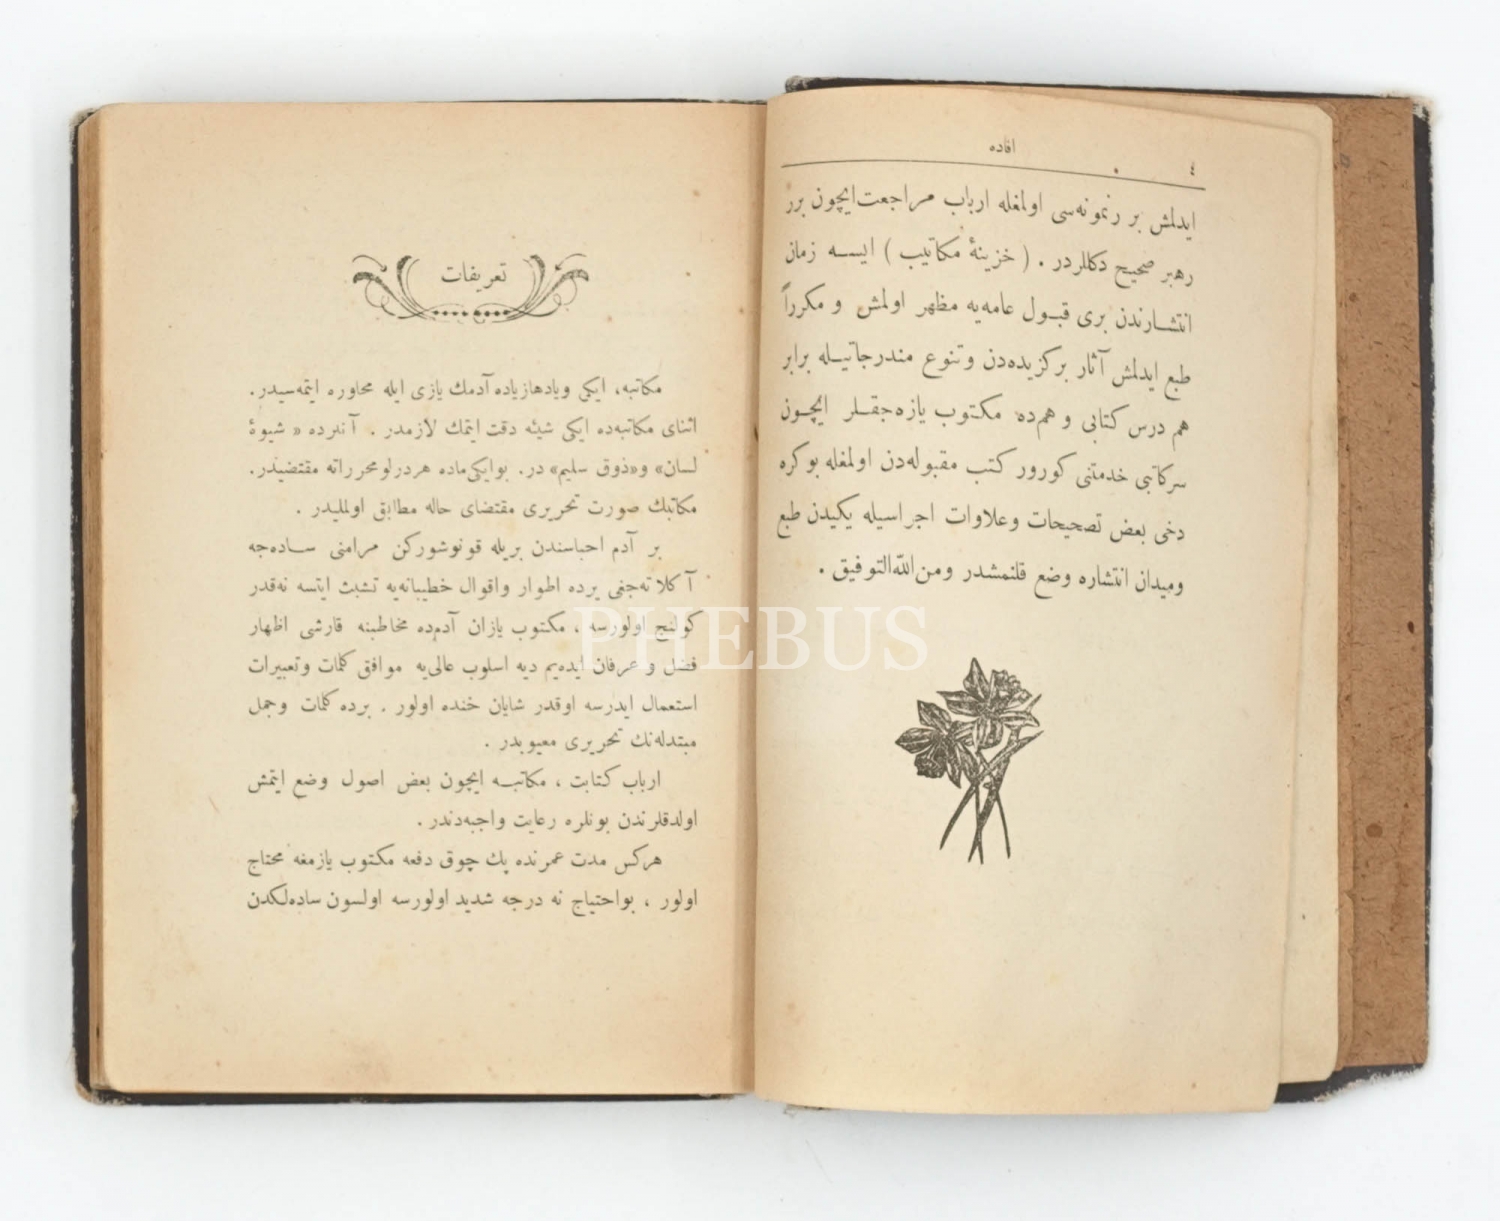 ٤
افاده
ایدلمش بر رنمونه‌سی اولمغله ارباب مراجعت ایچون برر
رهبر صحیح دکللردر . ( خزینهٔ مکاتیب ) ایسه زمان
انتشارندن بری قبول عامه‌یه مظهر اولمش و مکرراً
طبع ایدلمش آثار برکزیده‌دن و تنوع مندرجاتیله برابر
هم درس کتابی و هم‌ده مکتوب یازه‌جقلر ایچون
سرکاتبی خدمتنی کورور کتب مقبوله‌دن اولمغله بو کره
دخی بعض تصحیحات وعلاوات اجراسیله یکیدن طبع
ومیدان انتشاره وضع قلنمشدر ومن الله التوفیق .
تعریفات
مکاتبه، ایکی ویادهازیاده آدمك یازی ایله محاوره ایتمه‌سیدر.
اثنای مکاتبه‌ده ایکی شیئه دقت ایتمك لازمدر . آنلرده « شیوهٔ
لسان» و«ذوق سلیم» در. بوایکی ماده هردرلو محرراته مقتضیدر.
مکاتبك صورت تحریری مقتضای حاله مطابق اولملیدر .
بر آدم احباسندن بریله قونوشورکن مرامنی ساده‌جه
آکلاته‌جغی یرده اطوار واقوال خطیبانه‌یه تشبث ایتسه نه‌قدر
کولنج اولورسه ، مکتوب یازان آدم‌ده مخاطبنه قارشی اظهار
فضل و عرفان ایده‌یم دیه اسلوب عالی‌یه موافق کلمات وتعبیرات
استعمال ایدرسه اوقدر شایان خنده اولور . برده کلمات وجمل
مبتذله‌نك تحریری معیوبدر .
ارباب کتابت ، مکاتبه ایچون بعض اصول وضع ایتمش
اولدقلرندن بونلره رعایت واجبه‌دندر .
هرکس مدت عمرنده پك چوق دفعه مکتوب یازمغه محتاج
اولور ، بواحتیاج نه درجه شدید اولورسه اولسون ساده‌لکدن
PHEBUS